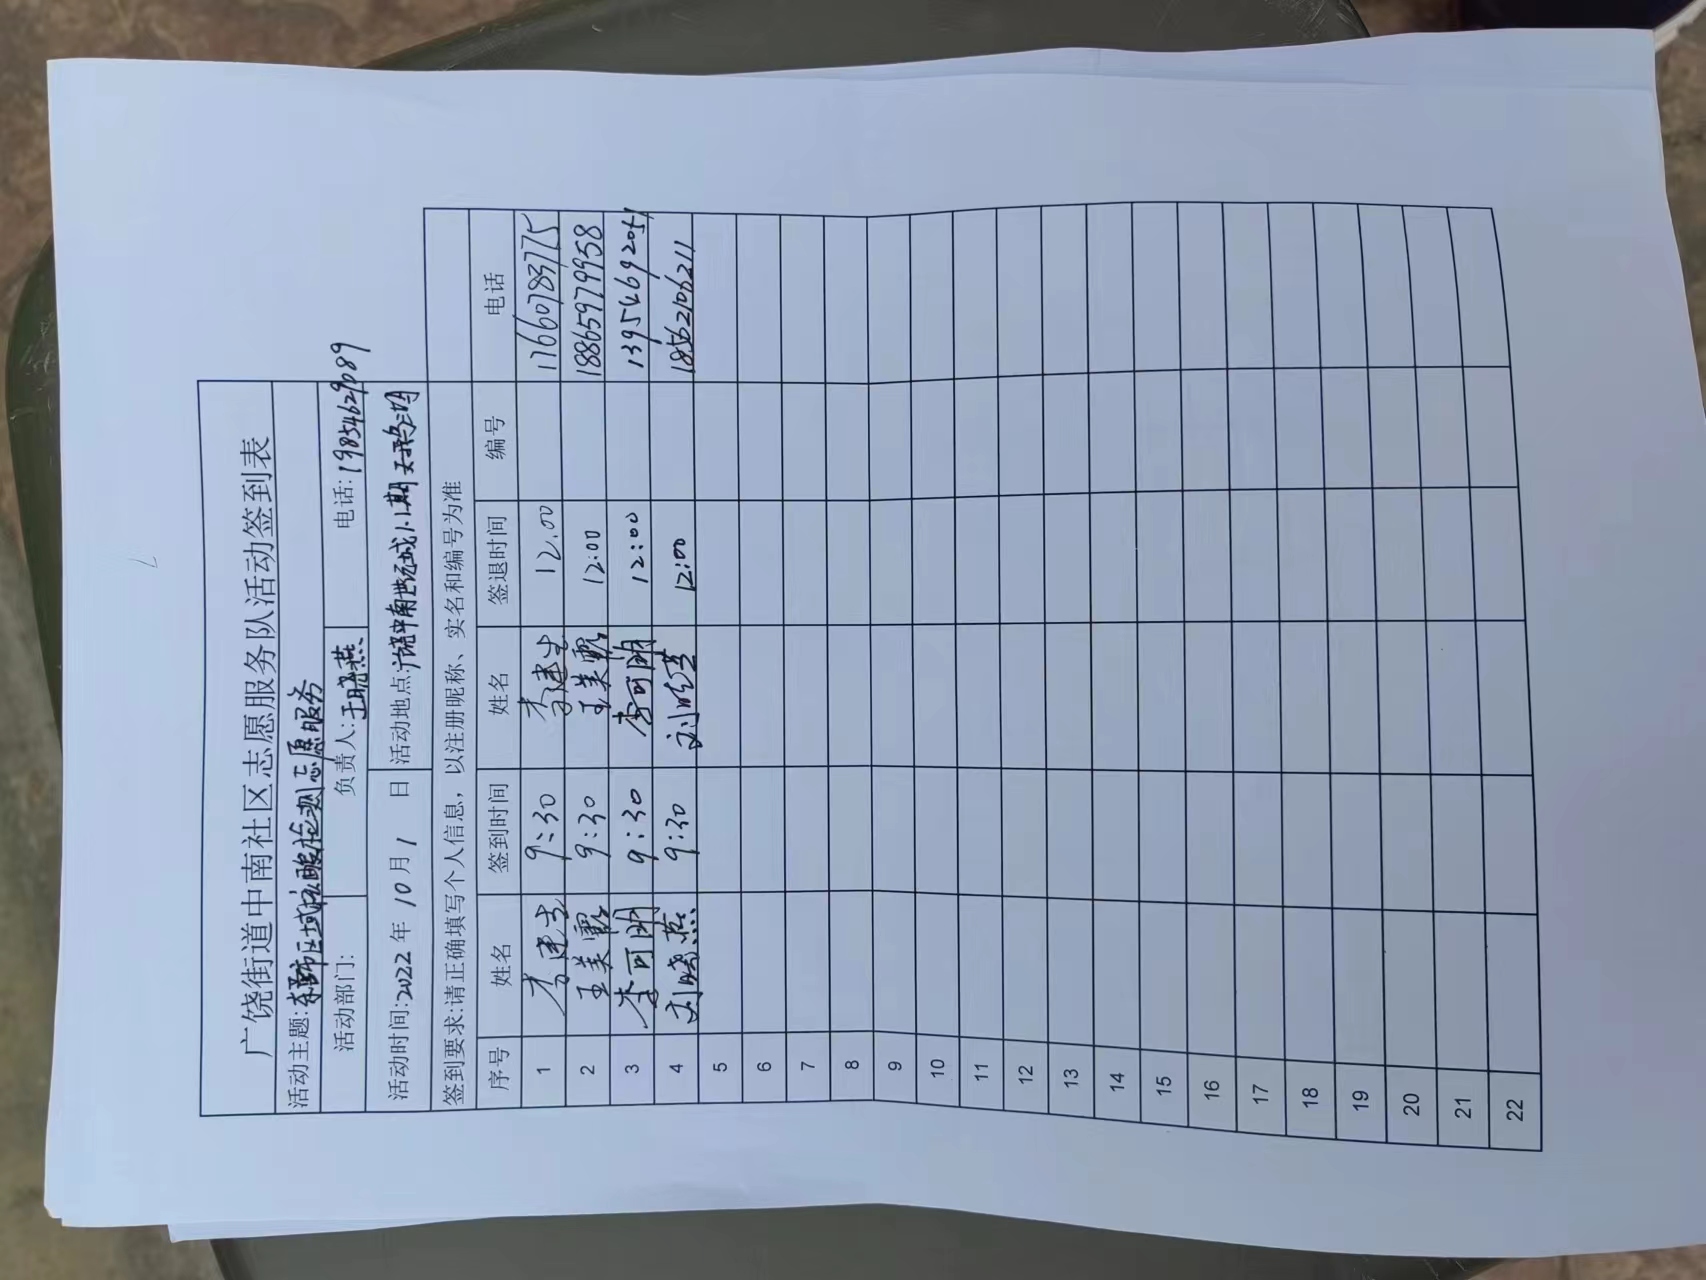 广饶街道中南社区志愿服务队活动签到表
活动主题:东营市区域核酸检测志愿服务
活动部门: 负责人:王晓燕 电话:19854629089
活动时间:2022 年 10 月 1 日 活动地点:广饶中南世纪城1.1期
签到要求:请正确填写个人信息，以注册昵称、实名和编号为准
序号 姓名 签到时间 姓名 签退时间 编号 电话
1 李建生 9:30 李建生 12.00 17660783775
2 王美霞 9:30 王美霞 12:00 18865979958
3 李可明 9:30 李可明 12:00
4 刘晓燕 9:30 刘晓燕 12:00 18562106211
5
6
7
8
9
10
11
12
13
14
15
16
17
18
19
20
21
22